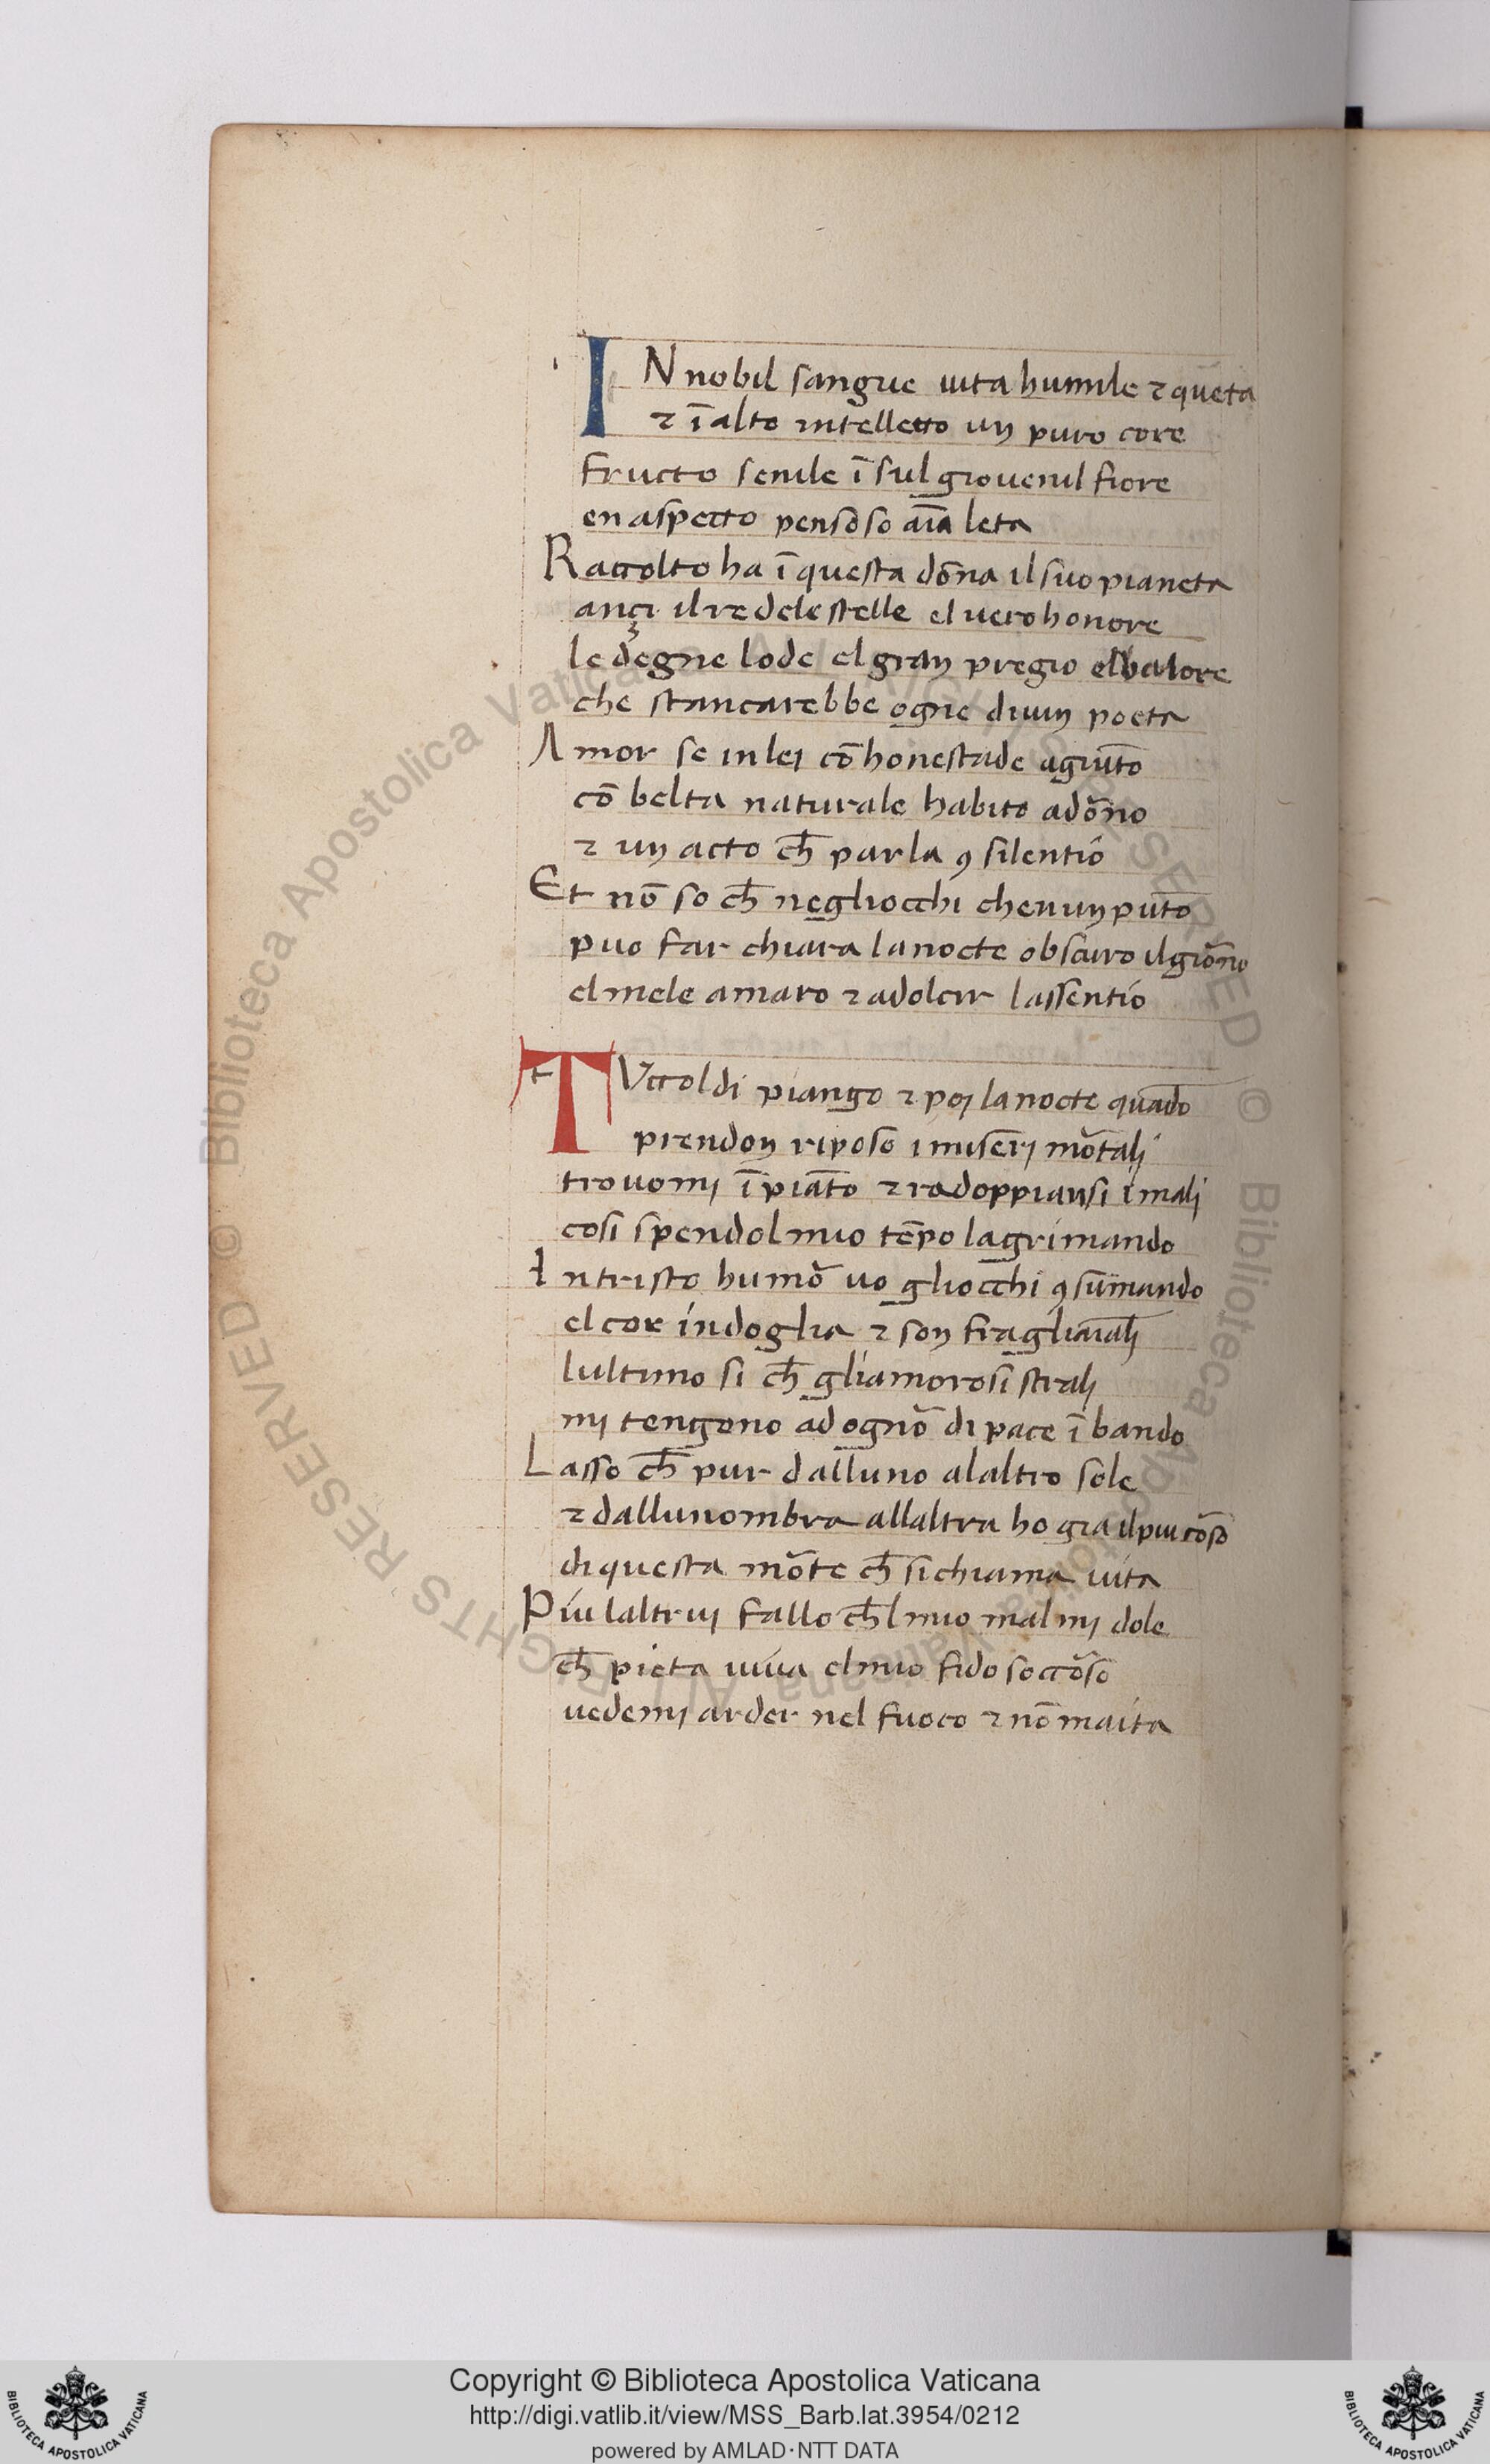 IN nobil sangue uita humile ⁊ queta
⁊ ī alto intelletto un puro core
fructo senile ī sul giouenil fiore
en aspecto pensoso aīa leta
Raccolto ha ī questa dōna il suo pianeta
ançi il re dele stelle el uero honore
le degne lode el gran pregio el ualore
che stancarebbe ogne diuin poeta
Amor se in lei cō honestade agiūto
cō belta naturale habito adōno
⁊ un acto ch̄ parla ꝯ silentio
Et nō so ch̄ negliocchi chenun pūto
puo far chiara la nocte obscuro il giōno
el mele amaro ⁊ adolcir lassentio
TVctol di piango ⁊ poi la nocte quādo
prendon riposo i miseri mōtali
trouomi ī piāto ⁊ radoppiansi i mali
cosi spendol mio tēpo lagrimando
In tristo humō uo gliocchi ꝯsūmando
el cor in doglia ⁊ son fragliaīali
lultimo si ch̄ gliamorosi strali
mi tengono ad ognō di pace ī bando
Lasso ch̄ pur dalluno alaltro sole
⁊ dallunombra allaltra ho gia il piu cōso
di questa mōte ch̄ si chiama uita
Piu laltrui fallo ch̄l mio mal mi dole
ch̄ pieta uiua el mio fido soccōso
uedemi arder nel fuoco ⁊ nō maita
© Biblioteca Apostolica Vaticana ALL RIGHTS RESERVED © Biblioteca Apostolica Vaticana ALL RIGHTS RESERVED
Copyright © Biblioteca Apostolica Vaticana
http://digi.vatlib.it/view/MSS_Barb.lat.3954/0212
powered by AMLAD·NTT DATA
BIBLIOTECA APOSTOLICA VATICANA
BIBLIOTECA APOSTOLICA VATICANA